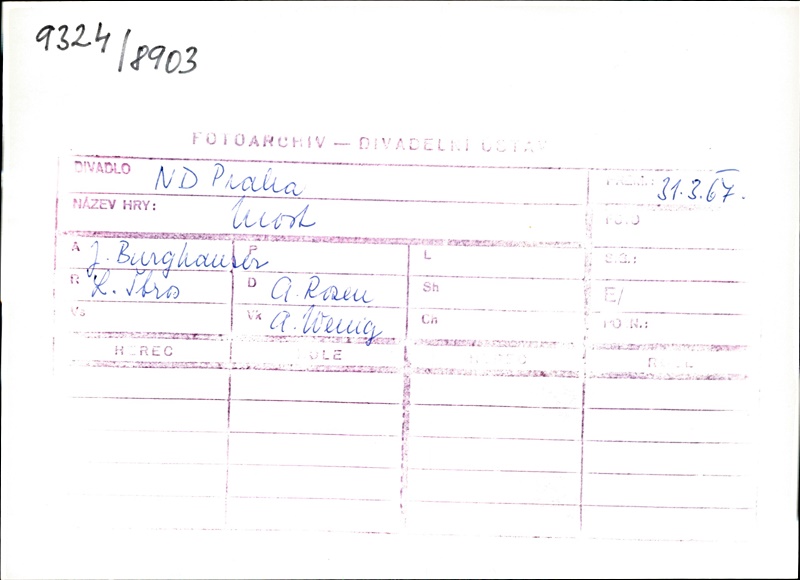 9324/8903
FOTOARCHIV — DIVADELNÍ ÚSTAV
DIVADLO ND Praha
PREM.: 31.3.67.
NÁZEV HRY: Most
A J. Burghauser P L
R K. Jbros D A. Rosen Sh E/
Vs Vk A. Wenig Ch POZN.:
HEREC ROLE HEREC ROLE